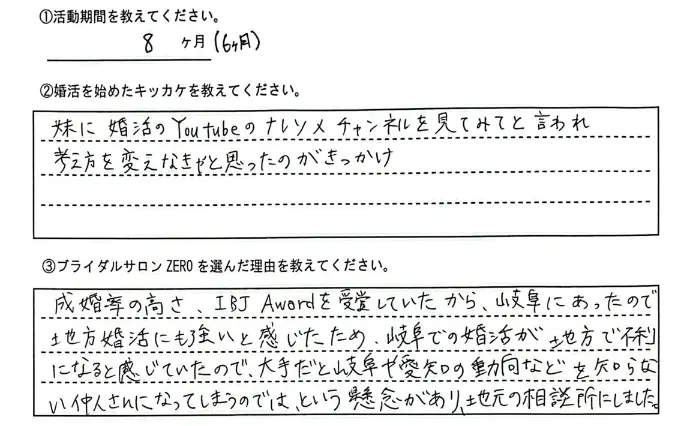 ①活動期間を教えてください。
8 ヶ月(6ヶ月)
②婚活を始めたキッカケを教えてください。
妹に 婚活のYoutubeのナレソメチャンネルを見てみてと言われ
考え方を変えなきゃと思ったのがきっかけ
③ブライダルサロン ZERO を選んだ理由を教えてください。
成婚率の高さ、IBJ Awordを受賞していたから、岐阜にあったので
地方婚活にも強いと感じたため、岐阜での婚活が 地方で不利
になると感じていたので、大手だと岐阜や愛知の動向などを知らな
い仲人さんになってしまうのでは、という懸念があり、地元の相談所にしました。